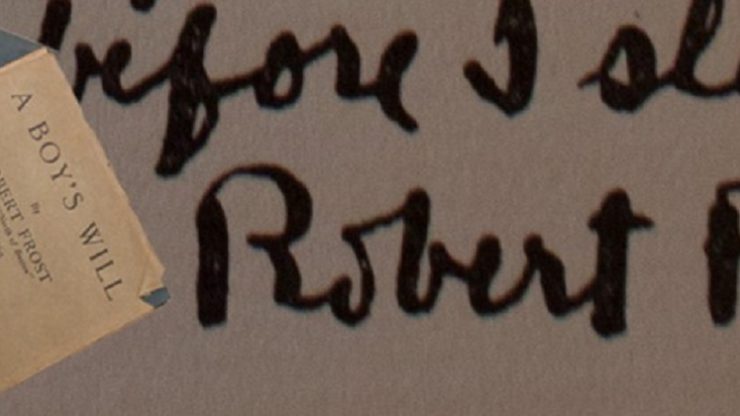 before I sl
Robert
A BOY'S WILL
By
ROBERT FROST